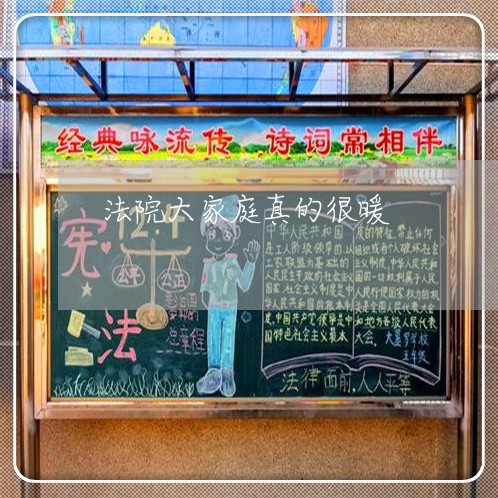 经典咏流传 诗词常相伴
法院大家庭真的很暖
12.4
宪
法
公平
公正
总章程
中华人民共和国
是工人阶级领导的,以
工农联盟为基础的
人民民主专政的社会主义
国家,社会主义制度是中
华人民共和国的根本制
度,中国共产党领导是中
国特色社会主义最本
质的特征,禁止任何
组织或者个人破坏社会
主义制度,中华人民共和
国的一切权利属于人民,
人民行使国家权力的机
关是全国人民代表大会
和地方各级人民代表
大会。
五年级
法律面前,人人平等